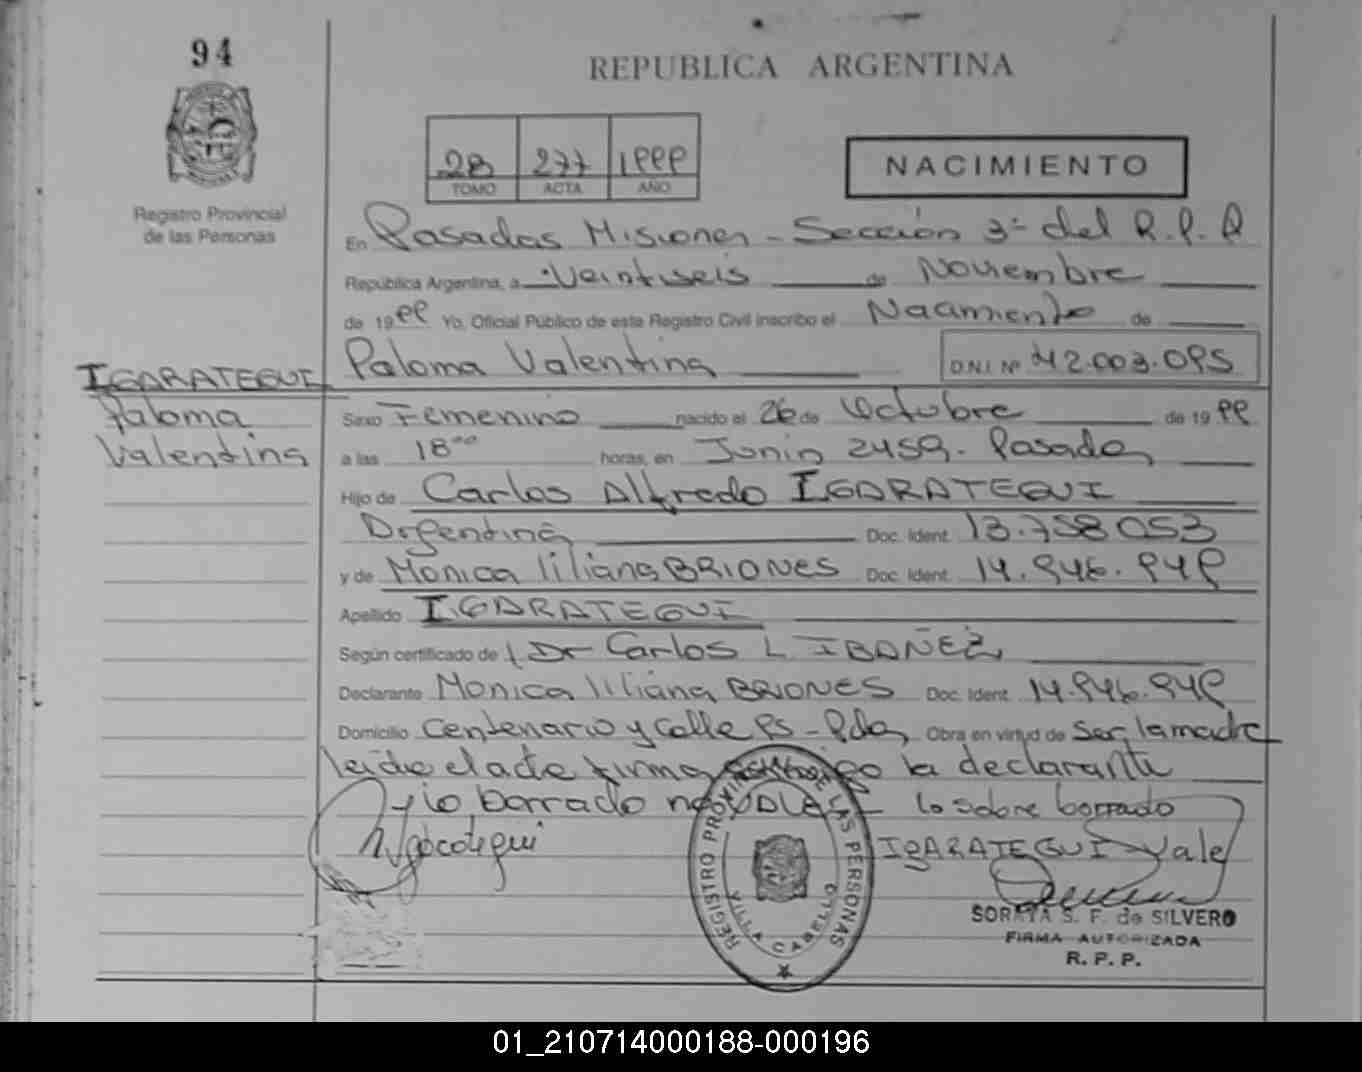 94
REPUBLICA ARGENTINA
2B 277 1999
TOMO ACTA AÑO
NACIMIENTO
Registro Provincial
de las Personas
En Posadas Misiones - Sección 3ª del R.P.P
República Argentina, a Veintiseis de Noviembre
de 1999 Yo, Oficial Público de este Registro Civil inscribo el Nacimiento de
Paloma Valentina D.N.I. Nº 42.003.095
IGARATEGUI
Paloma
Valentina
Sexo Femenino nacido el 26 de Octubre de 1999
a las 18°° horas, en Junin 2459. Posadas
Hijo de Carlos Alfredo IGARATEGUI
Argentina Doc. Ident. 13.758.053
y de Monica liliana BRIONES Doc. Ident. 14.946.949
Apellido IGARATEGUI
Según certificado de Dr Carlos L IBAÑEZ
Declarante Monica liliana BRIONES Doc. Ident. 14.946.949
Domicilio Centenario y Calle 95 - Pdas Obra en virtud de Ser la madre
leido el acta firma la declarante
lo borrado no VALE lo sobre borrado
IGARATEGUI Vale
REGISTRO PROVINCIAL DE LAS PERSONAS
VILLA CABELLO
SORAYA S. F. de SILVERO
FIRMA AUTORIZADA
R. P. P.
01_210714000188-000196